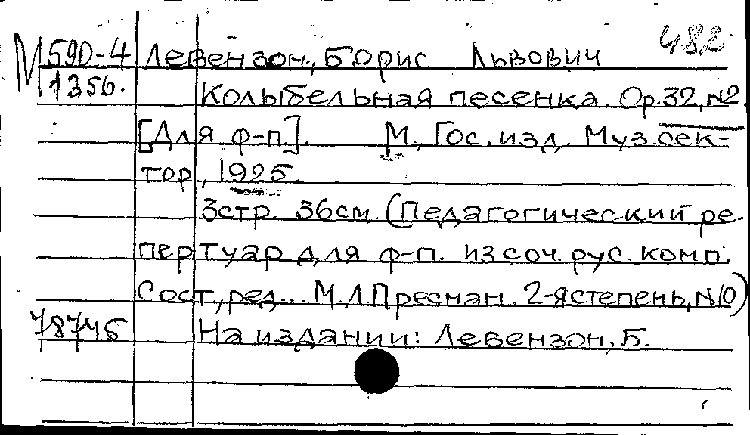 482
М 590-4 Левензон, Борис Львович
1356. Колыбельная песенка. Ор.32, №2
[Для ф-п.]. М., Гос. изд. Муз. сек-
тор, 1925.
3стр. 36см. (Педагогический ре-
пертуар для ф-п. из соч. рус. комп.
Сост., ред... М.Л. Пресман. 2-я степень, №10)
78745 На издании: Левензон, Б.